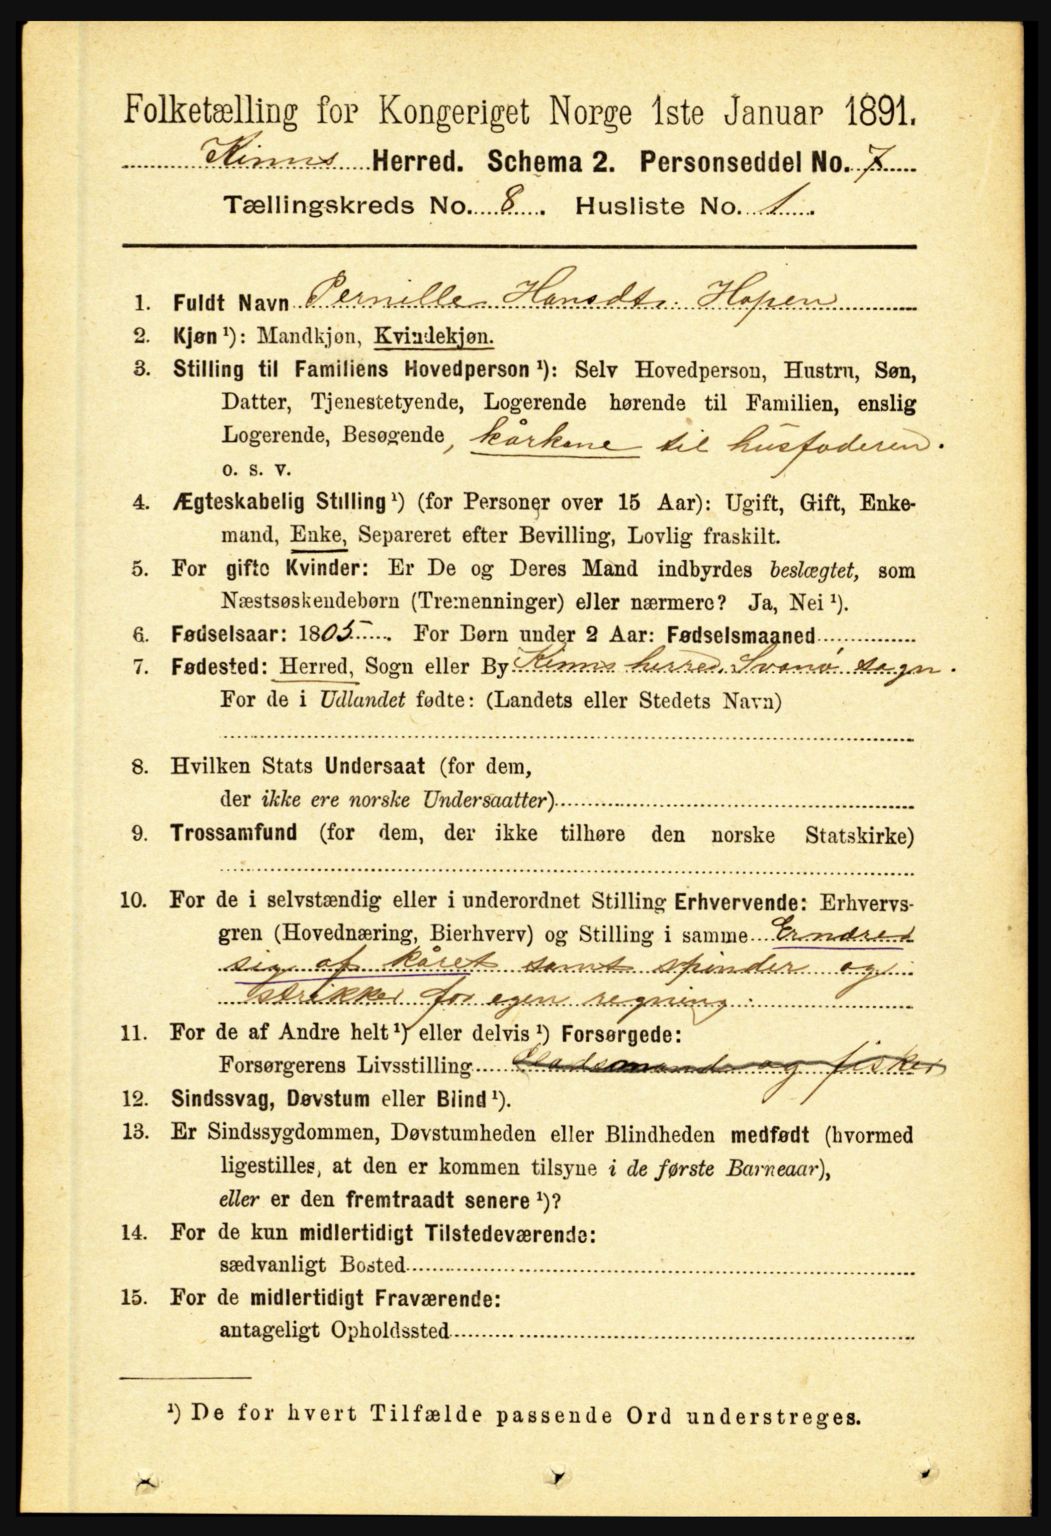 Folketælling for Kongeriget Norge 1ste Januar 1891.
Kinns Herred. Schema 2. Personseddel No. 7
Tællingskreds No. 8. Husliste No. 1.
1. Fuldt Navn Pernille Hansdtr. Hopen
2. Kjøn ¹): Mandkjøn, Kvindekjøn.
3. Stilling til Familiens Hovedperson ¹): Selv Hovedperson, Hustru, Søn,
Datter, Tjenestetyende, Logerende hørende til Familien, enslig
Logerende, Besøgende, kårkone til husfaderen.
o. s. v.
4. Ægteskabelig Stilling ¹) (for Personer over 15 Aar): Ugift, Gift, Enke-
mand, Enke, Separeret efter Bevilling, Lovlig fraskilt.
5. For gifte Kvinder: Er De og Deres Mand indbyrdes beslægtet, som
Næstsøskendebørn (Tremenninger) eller nærmere? Ja, Nei ¹).
6. Fødselsaar: 1805. For Børn under 2 Aar: Fødselsmaaned
7. Fødested: Herred, Sogn eller By Kinns herred, Svanø sogn.
For de i Udlandet fødte: (Landets eller Stedets Navn)
8. Hvilken Stats Undersaat (for dem,
der ikke ere norske Undersaatter)
9. Trossamfund (for dem, der ikke tilhøre den norske Statskirke)
10. For de i selvstændig eller i underordnet Stilling Erhvervende: Erhvervs-
gren (Hovednæring, Bierhverv) og Stilling i samme Ernærer
sig af kåret samt spinder og
strikker for egen regning.
11. For de af Andre helt ¹) eller delvis ¹) Forsørgede:
Forsørgerens Livsstilling Gaardmand og fisker
12. Sindssvag, Døvstum eller Blind ¹).
13. Er Sindssygdommen, Døvstumheden eller Blindheden medfødt (hvormed
ligestilles, at den er kommen tilsyne i de første Barneaar),
eller er den fremtraadt senere ¹)?
14. For de kun midlertidigt Tilstedeværende:
sædvanligt Bosted
15. For de midlertidigt Fraværende:
antageligt Opholdssted
¹) De for hvert Tilfælde passende Ord understreges.